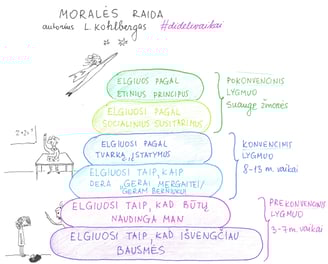 MORALĖS RAIDA
autorius L. Kohlbergas #didelivaikai
ELGIUOSI PAGAL
ETINIUS PRINCIPUS
ELGIUOSI PAGAL
SOCIALINIUS SUSITARIMUS
POKONVENCINIS
LYGMUO
Suaugę žmonės
2+2="
ELGIUOSI PAGAL
TVARKĄ, ĮSTATYMUS
ELGIUOSI TAIP, KAIP
DERA „GERAI MERGAITEI/
GERAM BERNIUKUI
KONVENCINIS
LYGMUO
8-13 m. vaikai
ELGIUOSI TAIP, KAD BŪTŲ
NAUDINGA MAN
ELGIUOSI TAIP, KAD IŠVENGČIAU
BAUSMĖS
PREKONVENCINIS
LYGMUO
3-7 m. vaikai